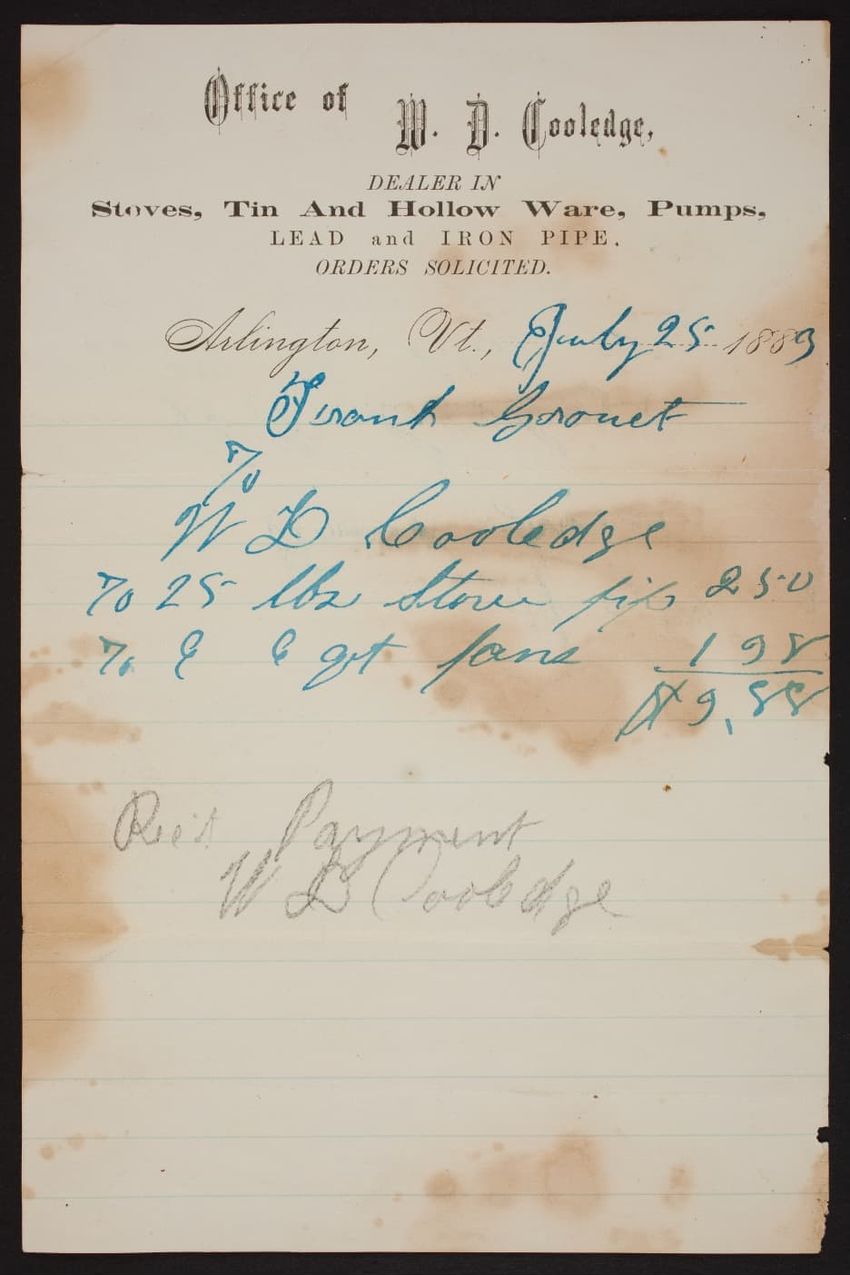 Office of W. D. Cooledge,
DEALER IN
Stoves, Tin And Hollow Ware, Pumps,
LEAD and IRON PIPE.
ORDERS SOLICITED.
Arlington, Vt., July 25 1883
Frank
To
W D Cooledge
To 25 lbs Stove pip 2 50
To 6 6 qt pans 1 38
$ 3,88
Rec't Payment
W D Cooledge